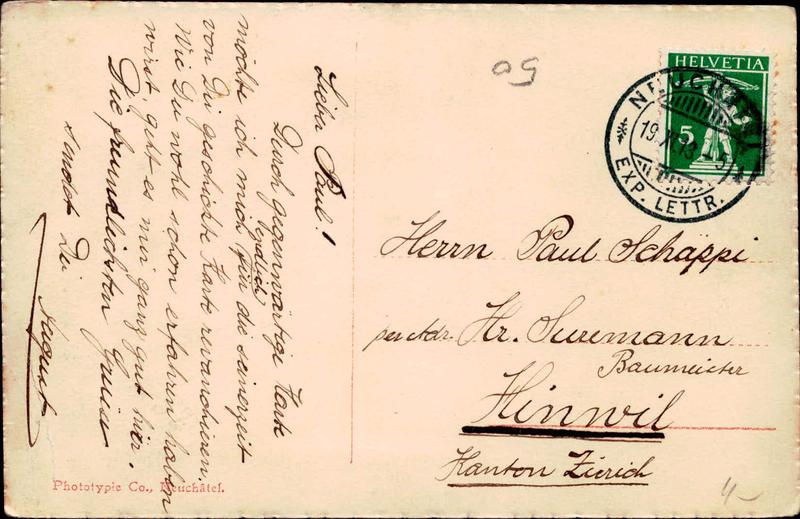 Lieber Paul!
Durch gegenwärtige Karte
endlich
möchte ich mich für die seinerzeit
von Dir geschickte Karte revanchieren.
Wie Du wohl schon erfahren haben
wirst, geht es mir ganz gut hier.
Die freundlichsten Grüsse
sendet Dir
August
50
HELVETIA
5
NEUCHATEL
19.XI.13.-5
EXP. LETTR.
Herrn Paul Schäppi
per Adr. Hr. Suremann
Baumeister
Hinwil
Kanton Zürich
Phototypie Co., Neuchâtel.
4-